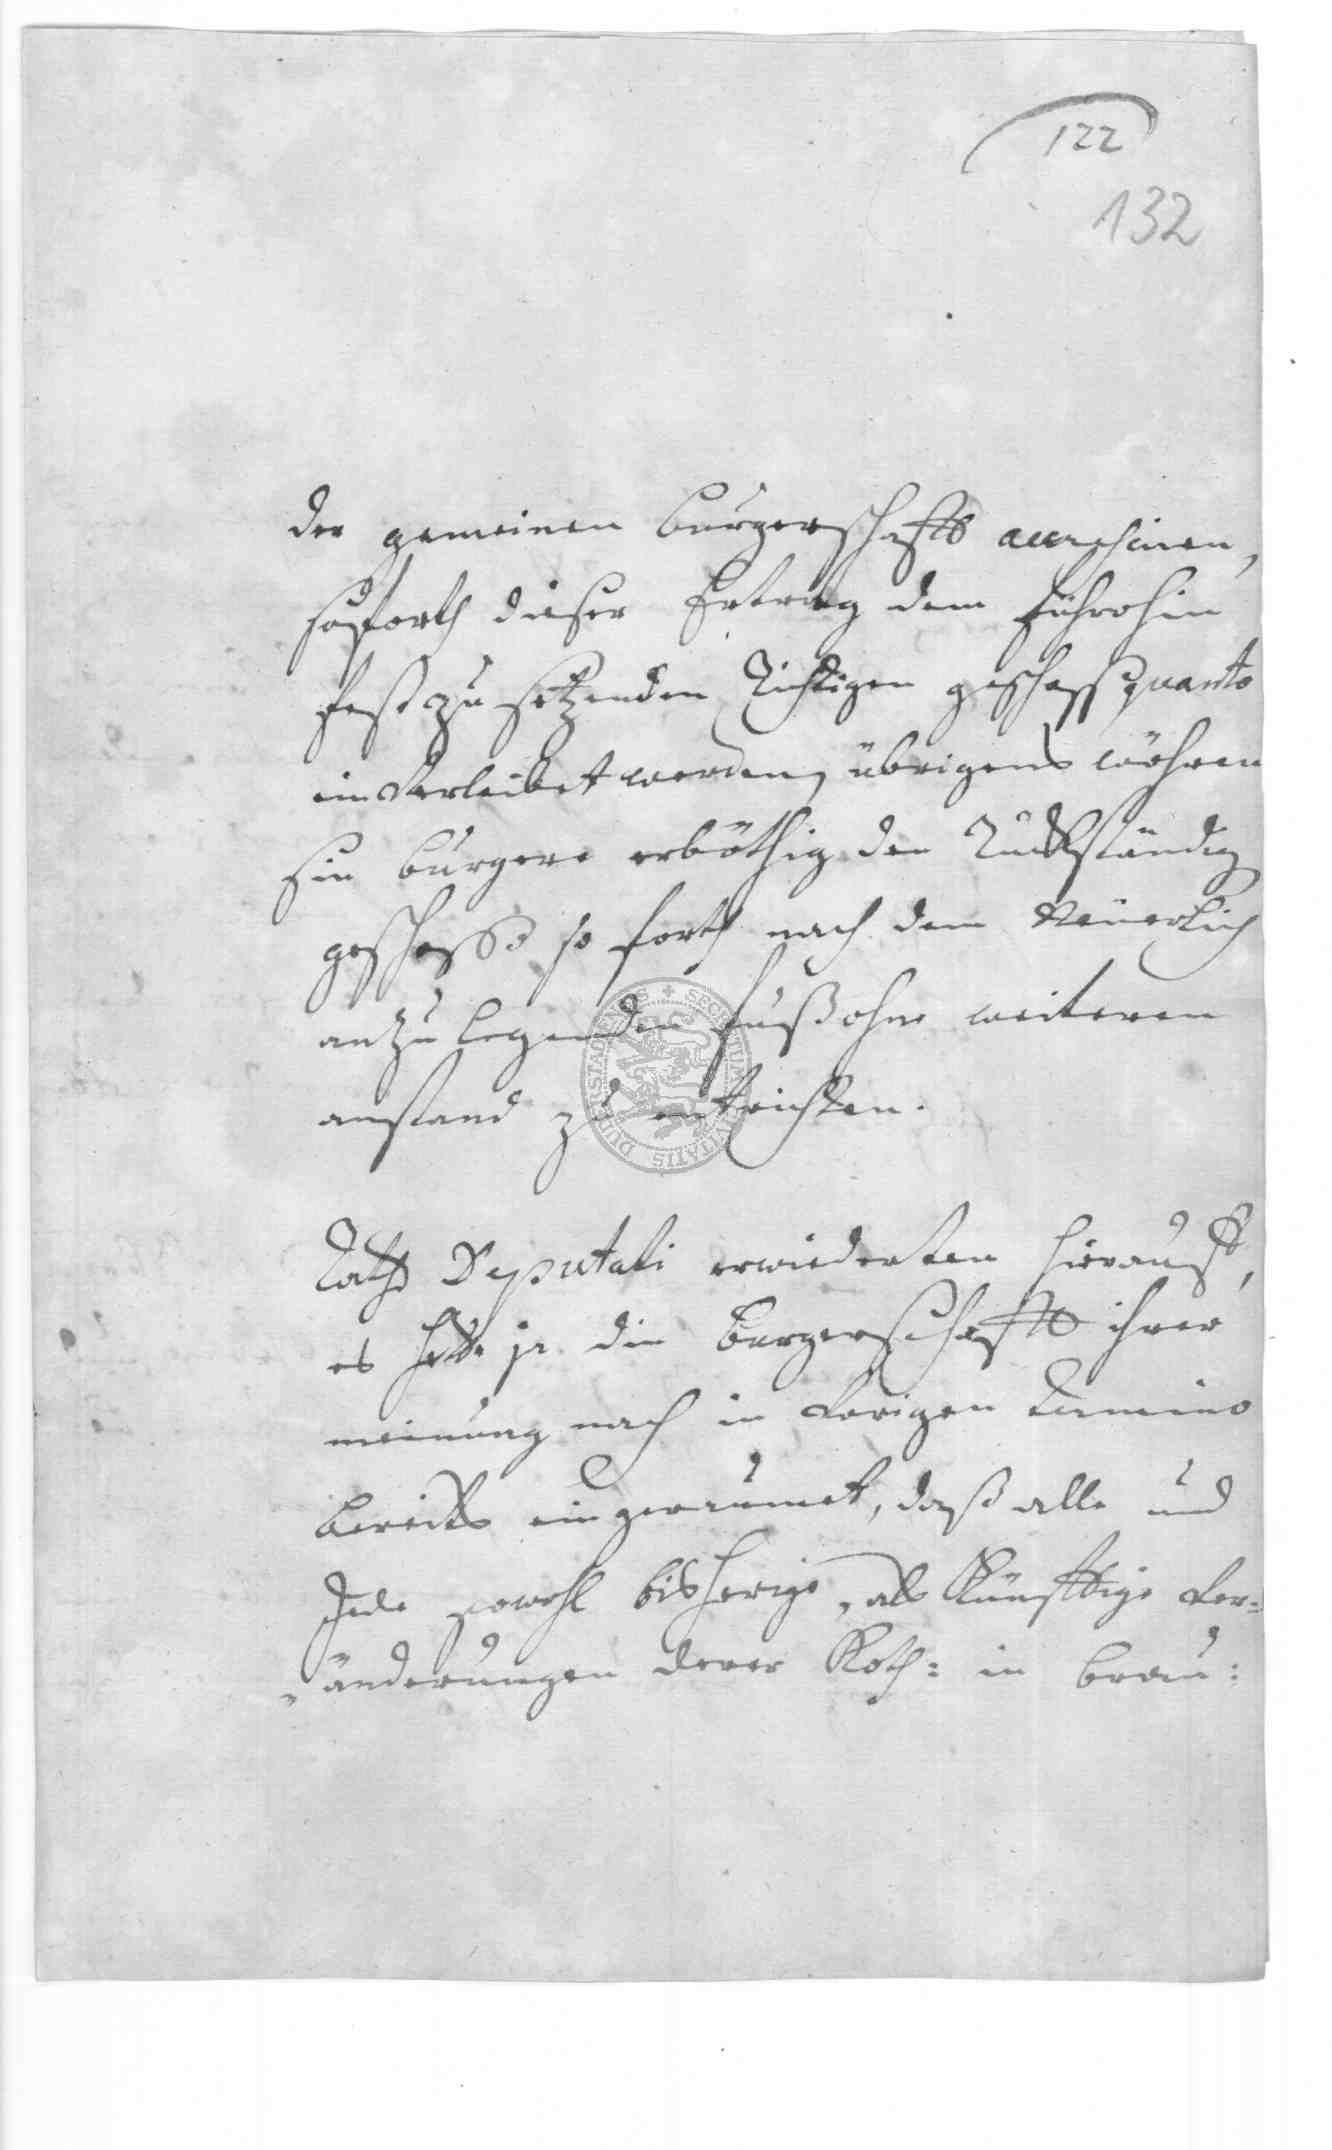 122
132
der gemeinen burgerschafft accresciren,
soforth dieser Ertrag dem führohin
fest zu setzenden Richtigen geschoss quanto
ein Verleibet werden, übrigens währen
sie burgere erböthig den Rückständig
geschoss so forth nach dem Neüerlich
anzu legenden fuß ohne weiteren
anstand zu entrichten.
Raths Deputati erwiederten hierauff,
es hette ja die burgerschafft ihrer
meinung nach in Vorigen termino
bereits eingeraumet, daß alle und
Jede sowohl bisherige, als Künfftige Ver=
änderungen derer Koth= in brau=